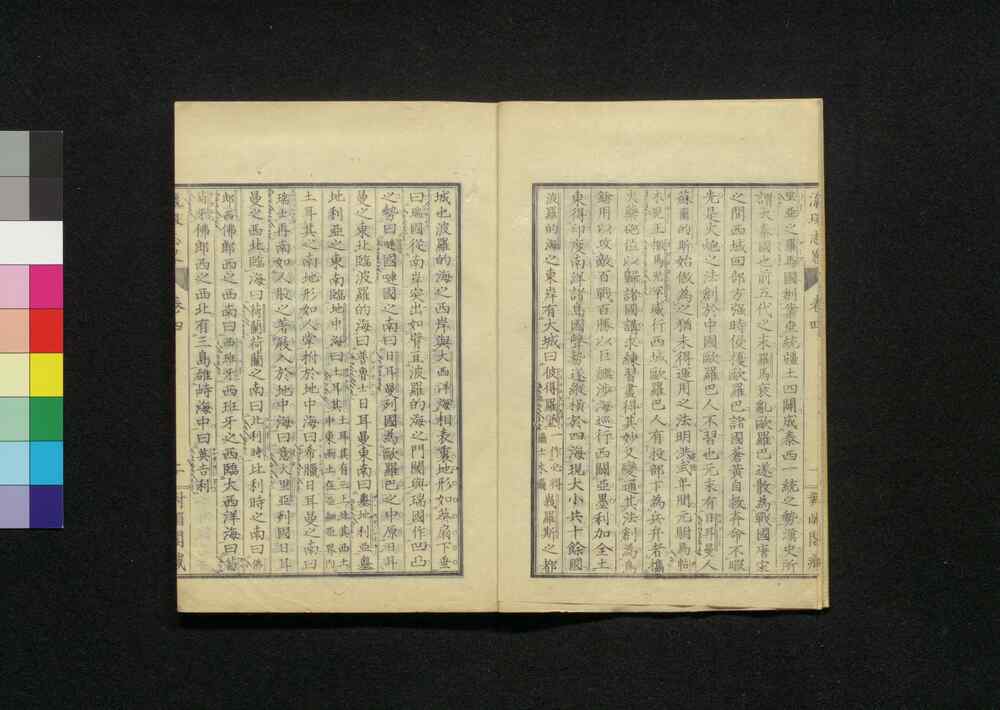 里亞之羅馬國創業垂統疆土四闢成泰西一統之勢漢史所
謂大秦國也前五代之末羅馬衰亂歐羅巴遂散為戰國唐宋
之間西域回部方強時侵擾歐羅巴諸國蒼黃自救奔命不暇
先是火炮之法創於中國歐羅巴人不習也元末有日耳曼人
蘇爾的斯始倣為之猶未得運用之法明洪武年間元駙馬帖
木兒王撒馬兒罕威行西域歐羅巴人有投部下為兵弁者攜
火藥炮位以歸諸國講求練習盡得其妙又變通其法創為鳥
鎗用以攻敵百戰百勝以巨艦涉海巡行西闢亞墨利加全土
東得印度南洋諸島國聲勢遂縱橫於四海現大小共十餘國
波羅的海之東岸有大城曰彼得羅堡一作必得峩羅斯之都
城也波羅的海之西岸與大西洋海相表裏地形如葉肩下垂
曰瑞國從南岸突出如臂亘波羅的海之門闥與瑞國作凹凸
之勢曰嗹國嗹國之南曰日耳曼列國為歐羅巴之中原日耳
曼之東北臨波羅的海曰普魯士日耳曼東南曰奧地利亞奧
地利亞之東南臨地中海曰土耳其土耳其有三土此其西土中東兩土在亞細亞界內
土耳其之南地形如人掌拊於地中海曰希臘日耳曼之南曰
瑞士再南如人股之著屐入於地中海曰意大里亞列國日耳
曼之西北臨海曰荷蘭荷蘭之南曰比利時比利時之南曰佛
郎西佛郎西之西南曰西班牙西班牙之西臨大西洋海曰葡
萄牙佛郎西之西北有三島雄峙海中曰英吉利
卷四
二